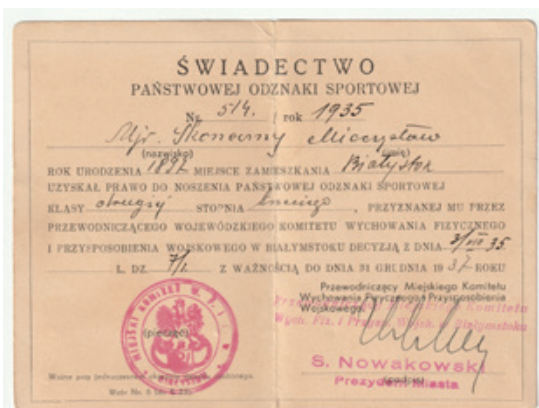 ŚWIADECTWO
PAŃSTWOWEJ ODZNAKI SPORTOWEJ
Nr 514. rok 1935
Mjr. Skonarny Mieczysław
(nazwisko) (imię)
ROK URODZENIA 1892 MIEJSCE ZAMIESZKANIA Białystok
UZYSKAŁ PRAWO DO NOSZENIA PAŃSTWOWEJ ODZNAKI SPORTOWEJ
KLASY STOPNIA , PRZYZNANEJ MU PRZEZ
PRZEWODNICZĄCEGO WOJEWÓDZKIEGO KOMITETU WYCHOWANIA FIZYCZNEGO
I PRZYSPOSOBIENIA WOJSKOWEGO W BIAŁYMSTOKU DECYZJĄ Z DNIA 35
L. DZ. 7/1 Z WAŻNOŚCIĄ DO DNIA 31 GRUDNIA 1937 ROKU
Przewodniczący Miejskiego Komitetu
Wychowania Fizycznego i Przysposobienia
Wojskowego
Przewodniczący Miejskiego Komitetu
Wych. Fiz. i Przysp. Wojsk. w Białymstoku
MIEJSKI KOMITET W. F. i P. W.
(pieczęć)
S. Nowakowski
Prezydent Miasta
(podpis)